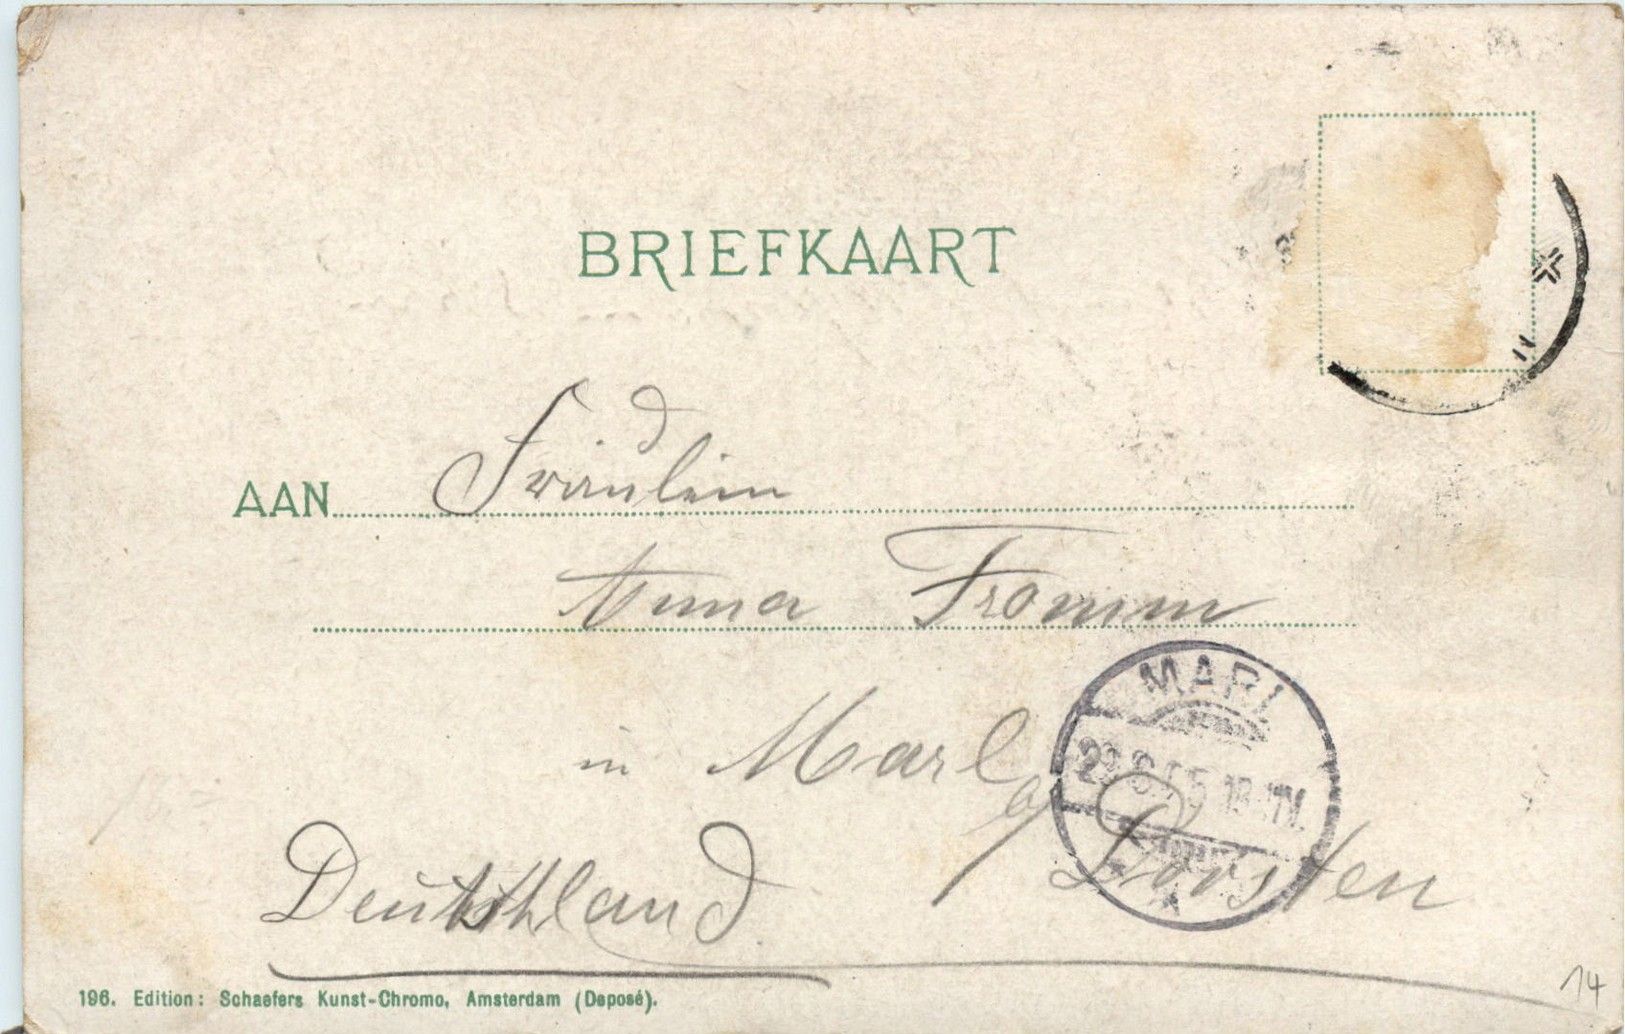 BRIEFKAART
AAN Fräulein
Anna Fromm
in Marl
a/ Dorsten
MARL
Deutschland.
196. Edition: Schaefers Kunst-Chromo, Amsterdam (Deposé).
14